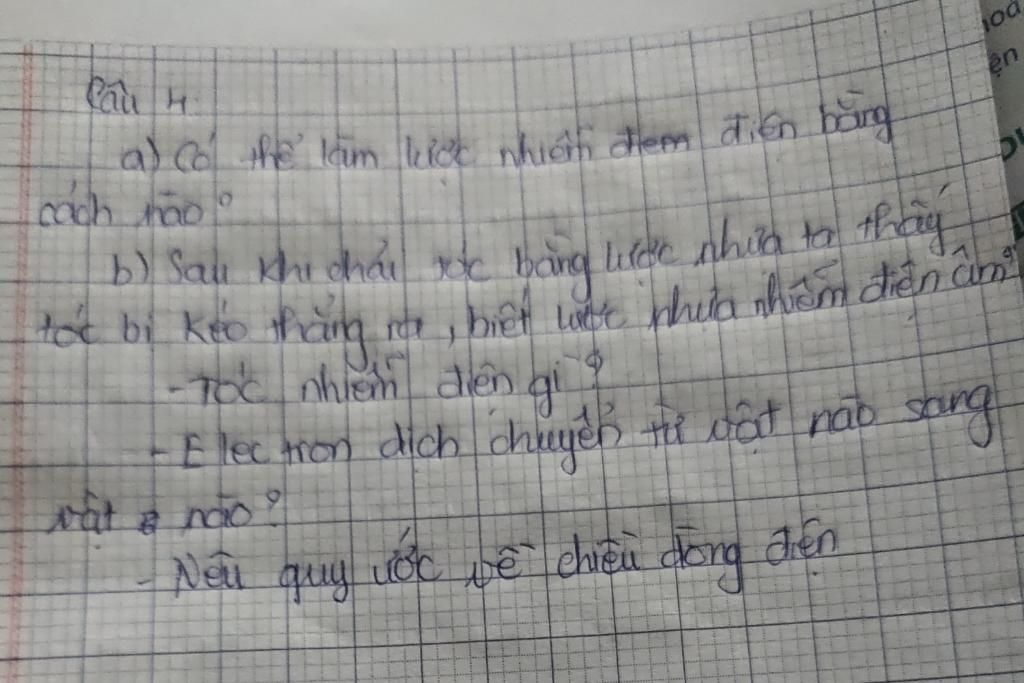 Câu 4.
a) Có thể làm lược nhiễm đem điện bằng
cách nào?
b) Sau khi chải tóc bằng lược nhựa ta thấy
tóc bị kéo thẳng ra, biết lược nhựa nhiễm điện âm?
- Tóc nhiễm điện gì?
- Electron dịch chuyển từ vật nào sang
vật nào?
- Nêu quy ước về chiều dòng điện
hoá
ện